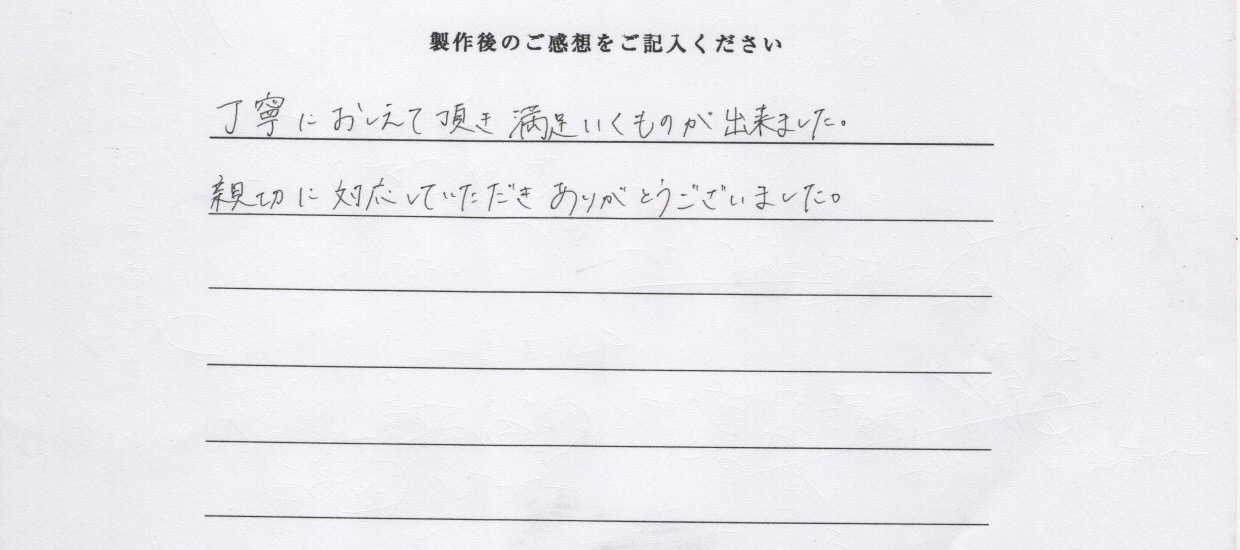 製作後のご感想をご記入ください
丁寧におしえて頂き満足いくものが出来ました。
親切に対応していただきありがとうございました。